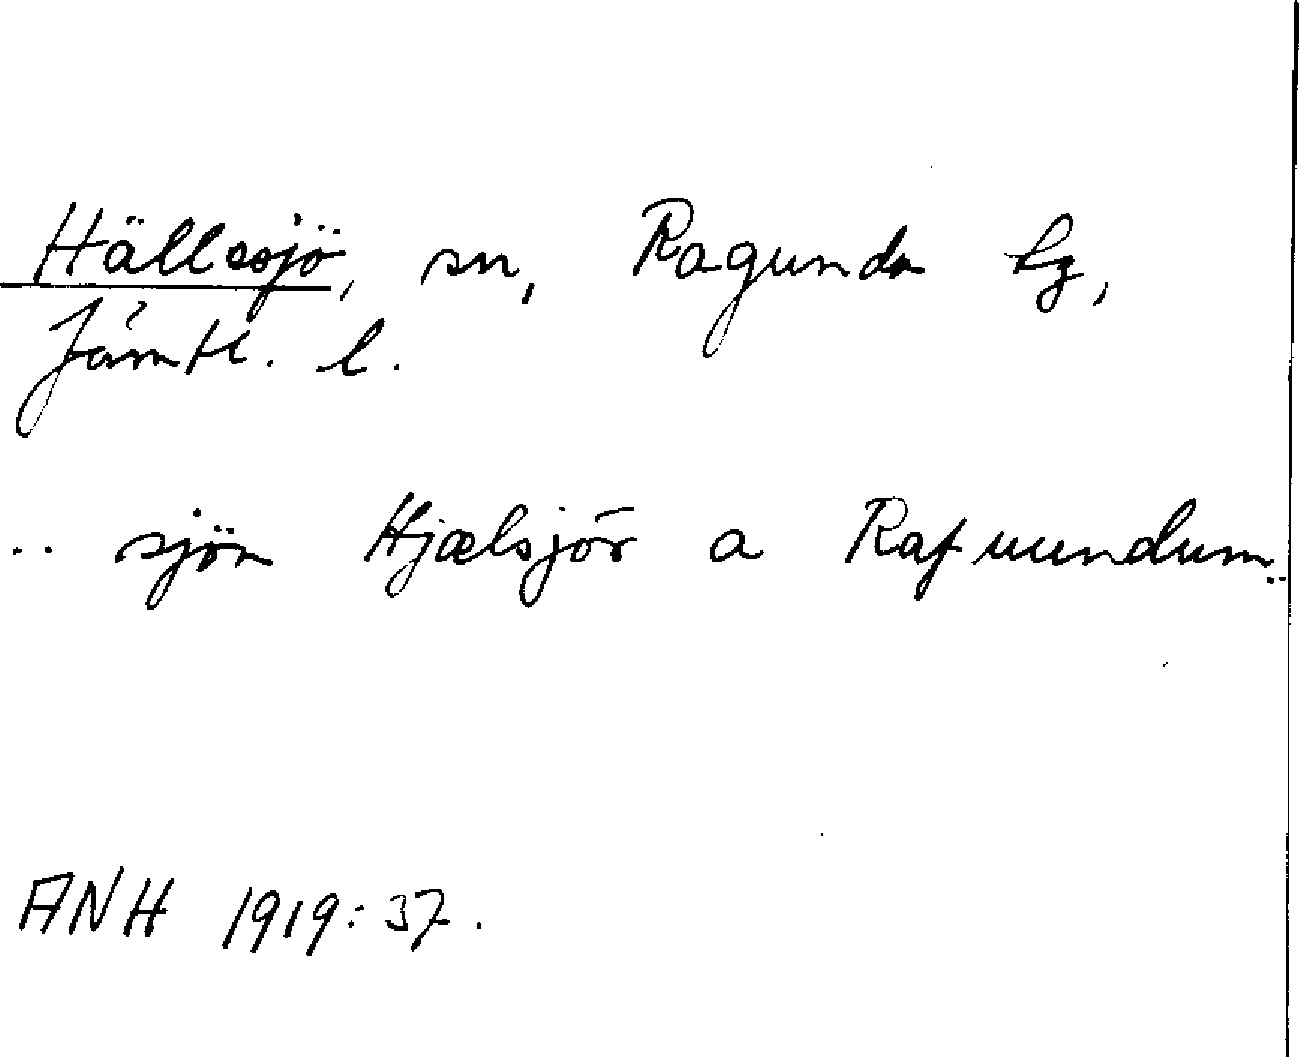 Hällesjö, sn, Ragunda tg,
Jämtl. l.
.. sjön Hjælsjór a Rafuundum..
ANH 1919:37.